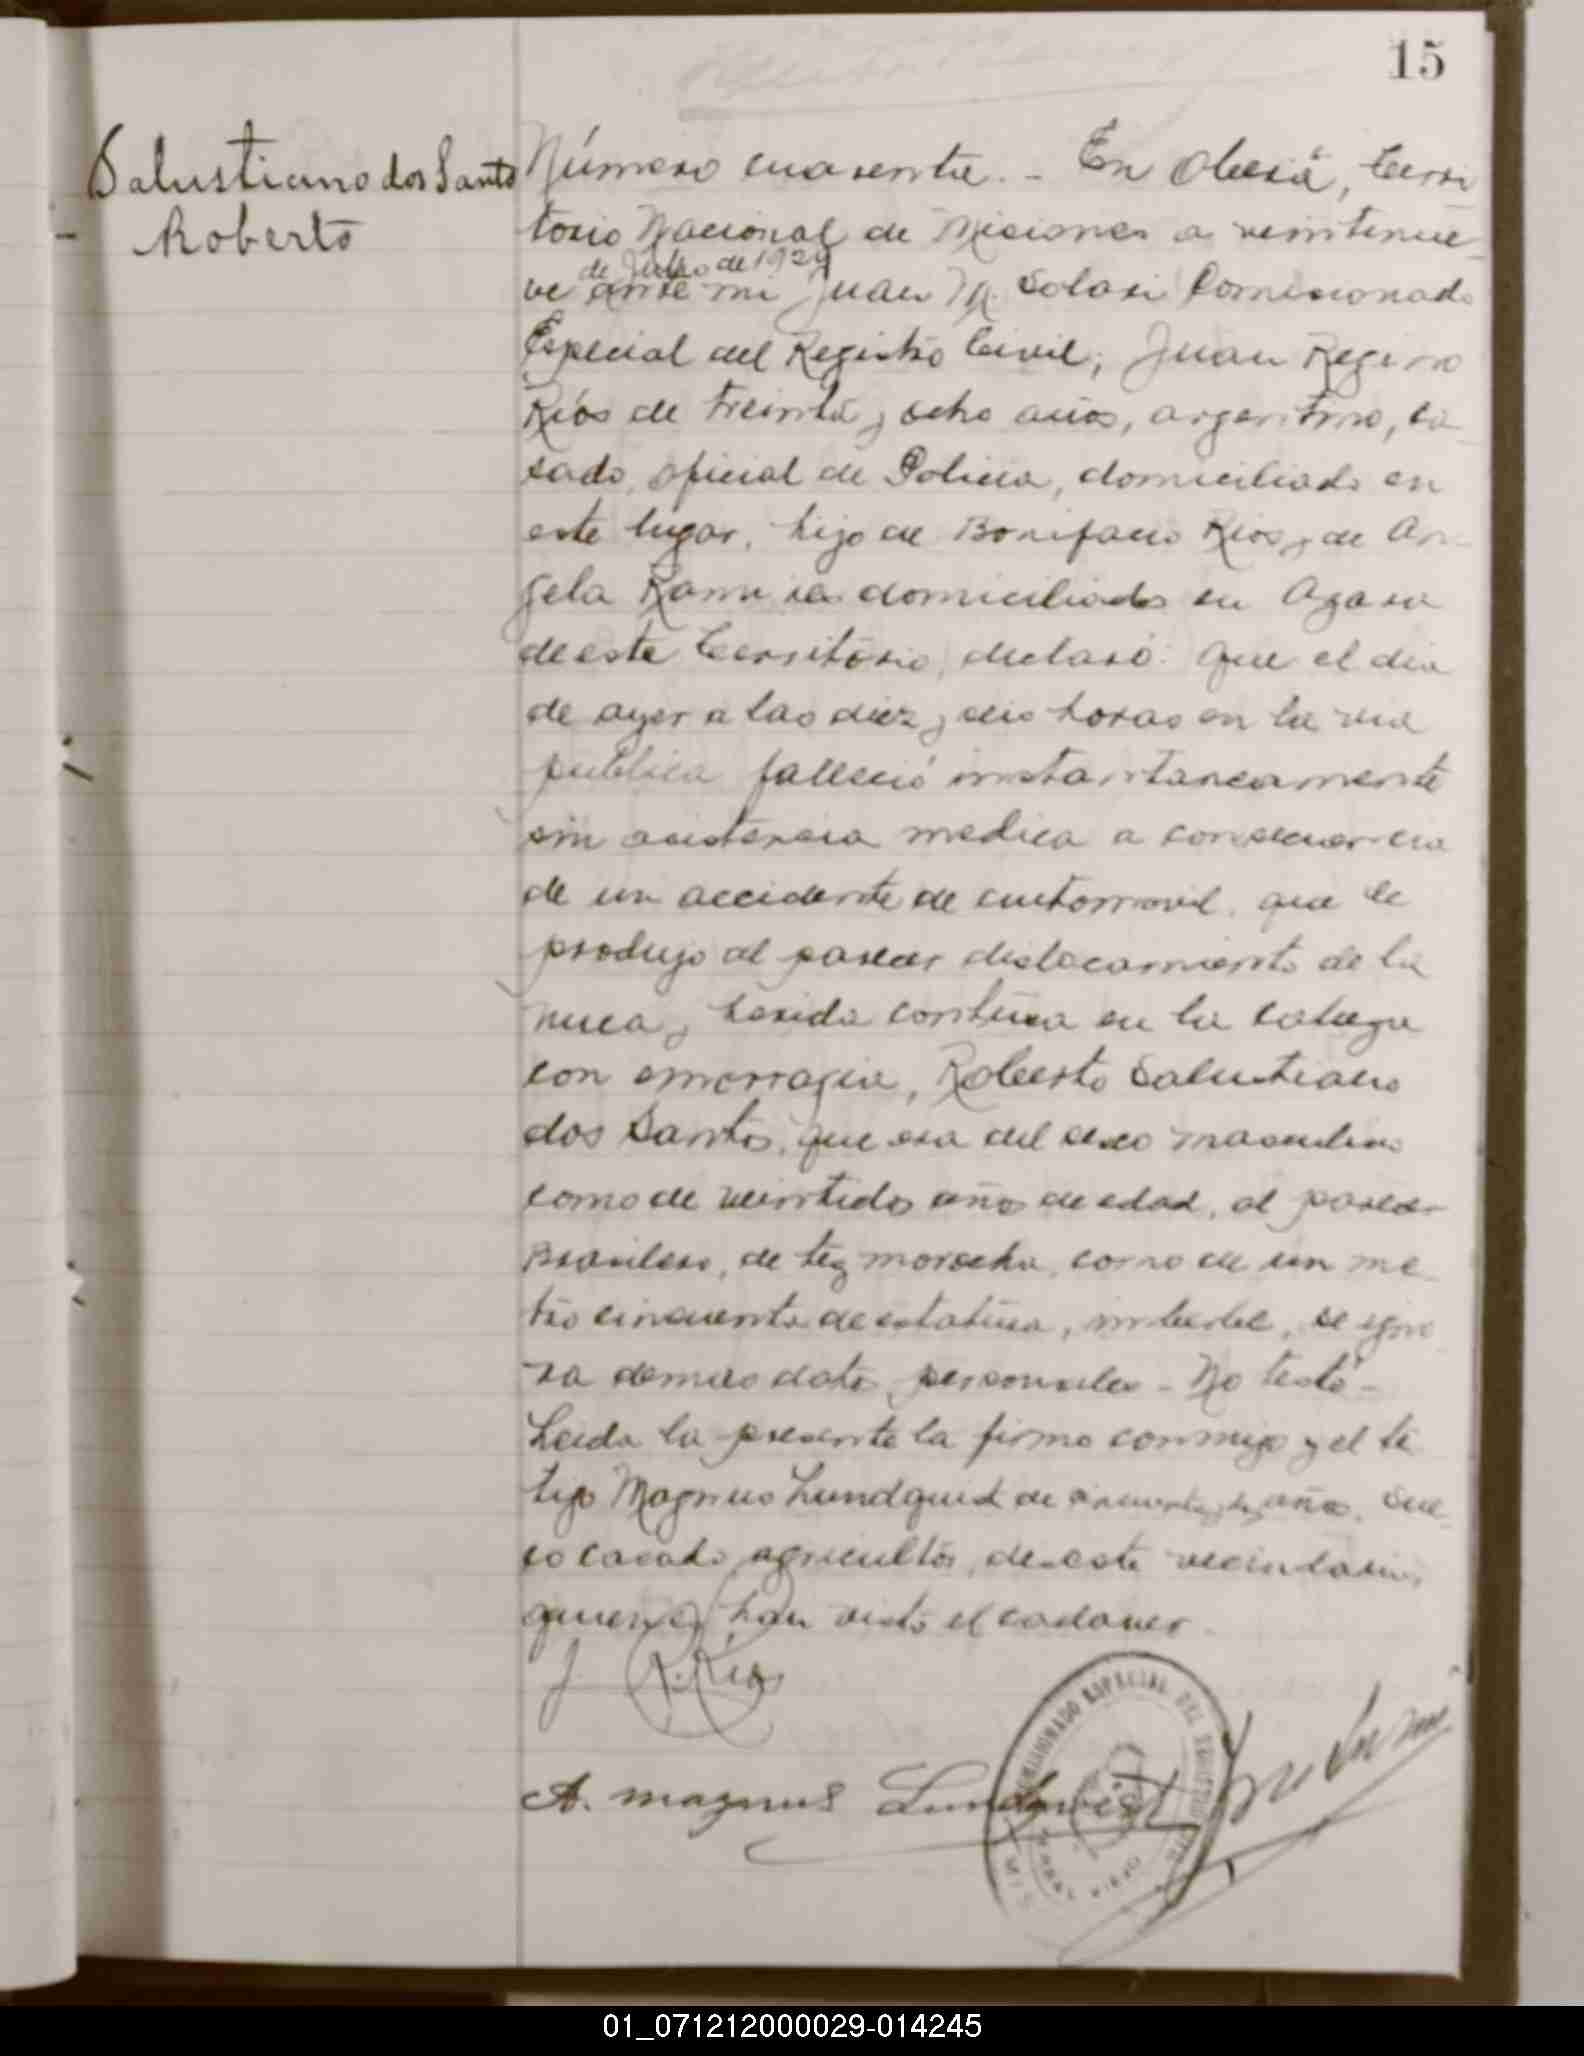 15
Salustiano dos Santos
- Roberto
Número cuarenta. - En Oberá, Terri
torio Nacional de Misiones a veintinue-
de Julio de 1929
ve ante mi Juan M. Solari Comisionado
Especial del Registro Civil, Juan Regino
Ríos de treinta y ocho años, argentino, ca-
sado, oficial de Policia, domiciliado en
este lugar, hijo de Bonifacio Rios y de An-
gela domiciliados en
de este territorio, declaró: Que el dia
de ayer a las diez y seis horas en la via
publica falleció instantaneamente
sin asistencia medica a consecuencia
de un accidente de automovil, que le
produjo al parecer dislocamiento de la
nuca y herida contusa en la cabeza
con emorragia, Roberto Salustiano
dos Santos, que era del sexo masculino
como de veintidos años de edad, al parecer
Brasilero, de tez morocha, como de un me-
tro cincuenta de estatura, imberbe, se igno
ra demas datos personales - No testó -
Leida la presente la firma conmigo y el te
tigo Magnus Lundquist de años, sue-
co casado, agricultor, de este vecindario,
quienes han visto el cadaver.
J. R. Rios
A. Magnus Lundqvist
COMISIONADO ESPECIAL DEL REGISTRO
01_071212000029-014245